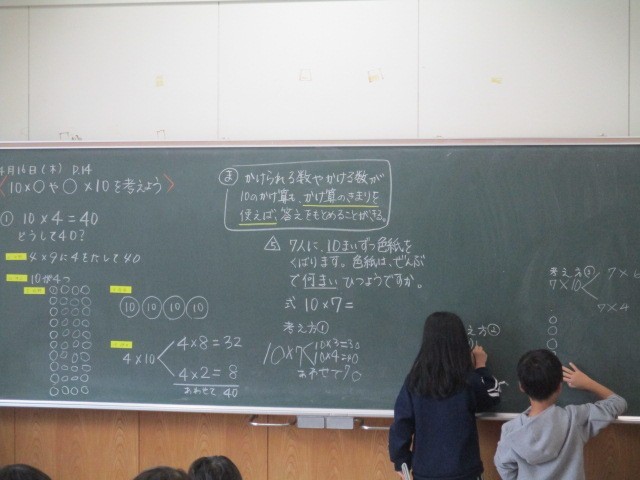 4月16日(木) P.14
10×○や○×10を考えよう
① 10×4=40
どうして40?
4×9に4をたして40
10が4つ
10 10 10 10
4×10
4×8=32
4×2=8
あわせて 40
ま かけられる数やかける数が
10のかけ算も、かけ算のきまりを
使えば、答えをもとめることができる。
5 7人に、10まいずつ色紙を
くばります。色紙は、ぜんぶ
で何まいひつようですか。
式 10×7=
考え方①
10×7
10×3=30
10×4=40
あわせて70
え方②
考え方③
7×10
7×6
7×4